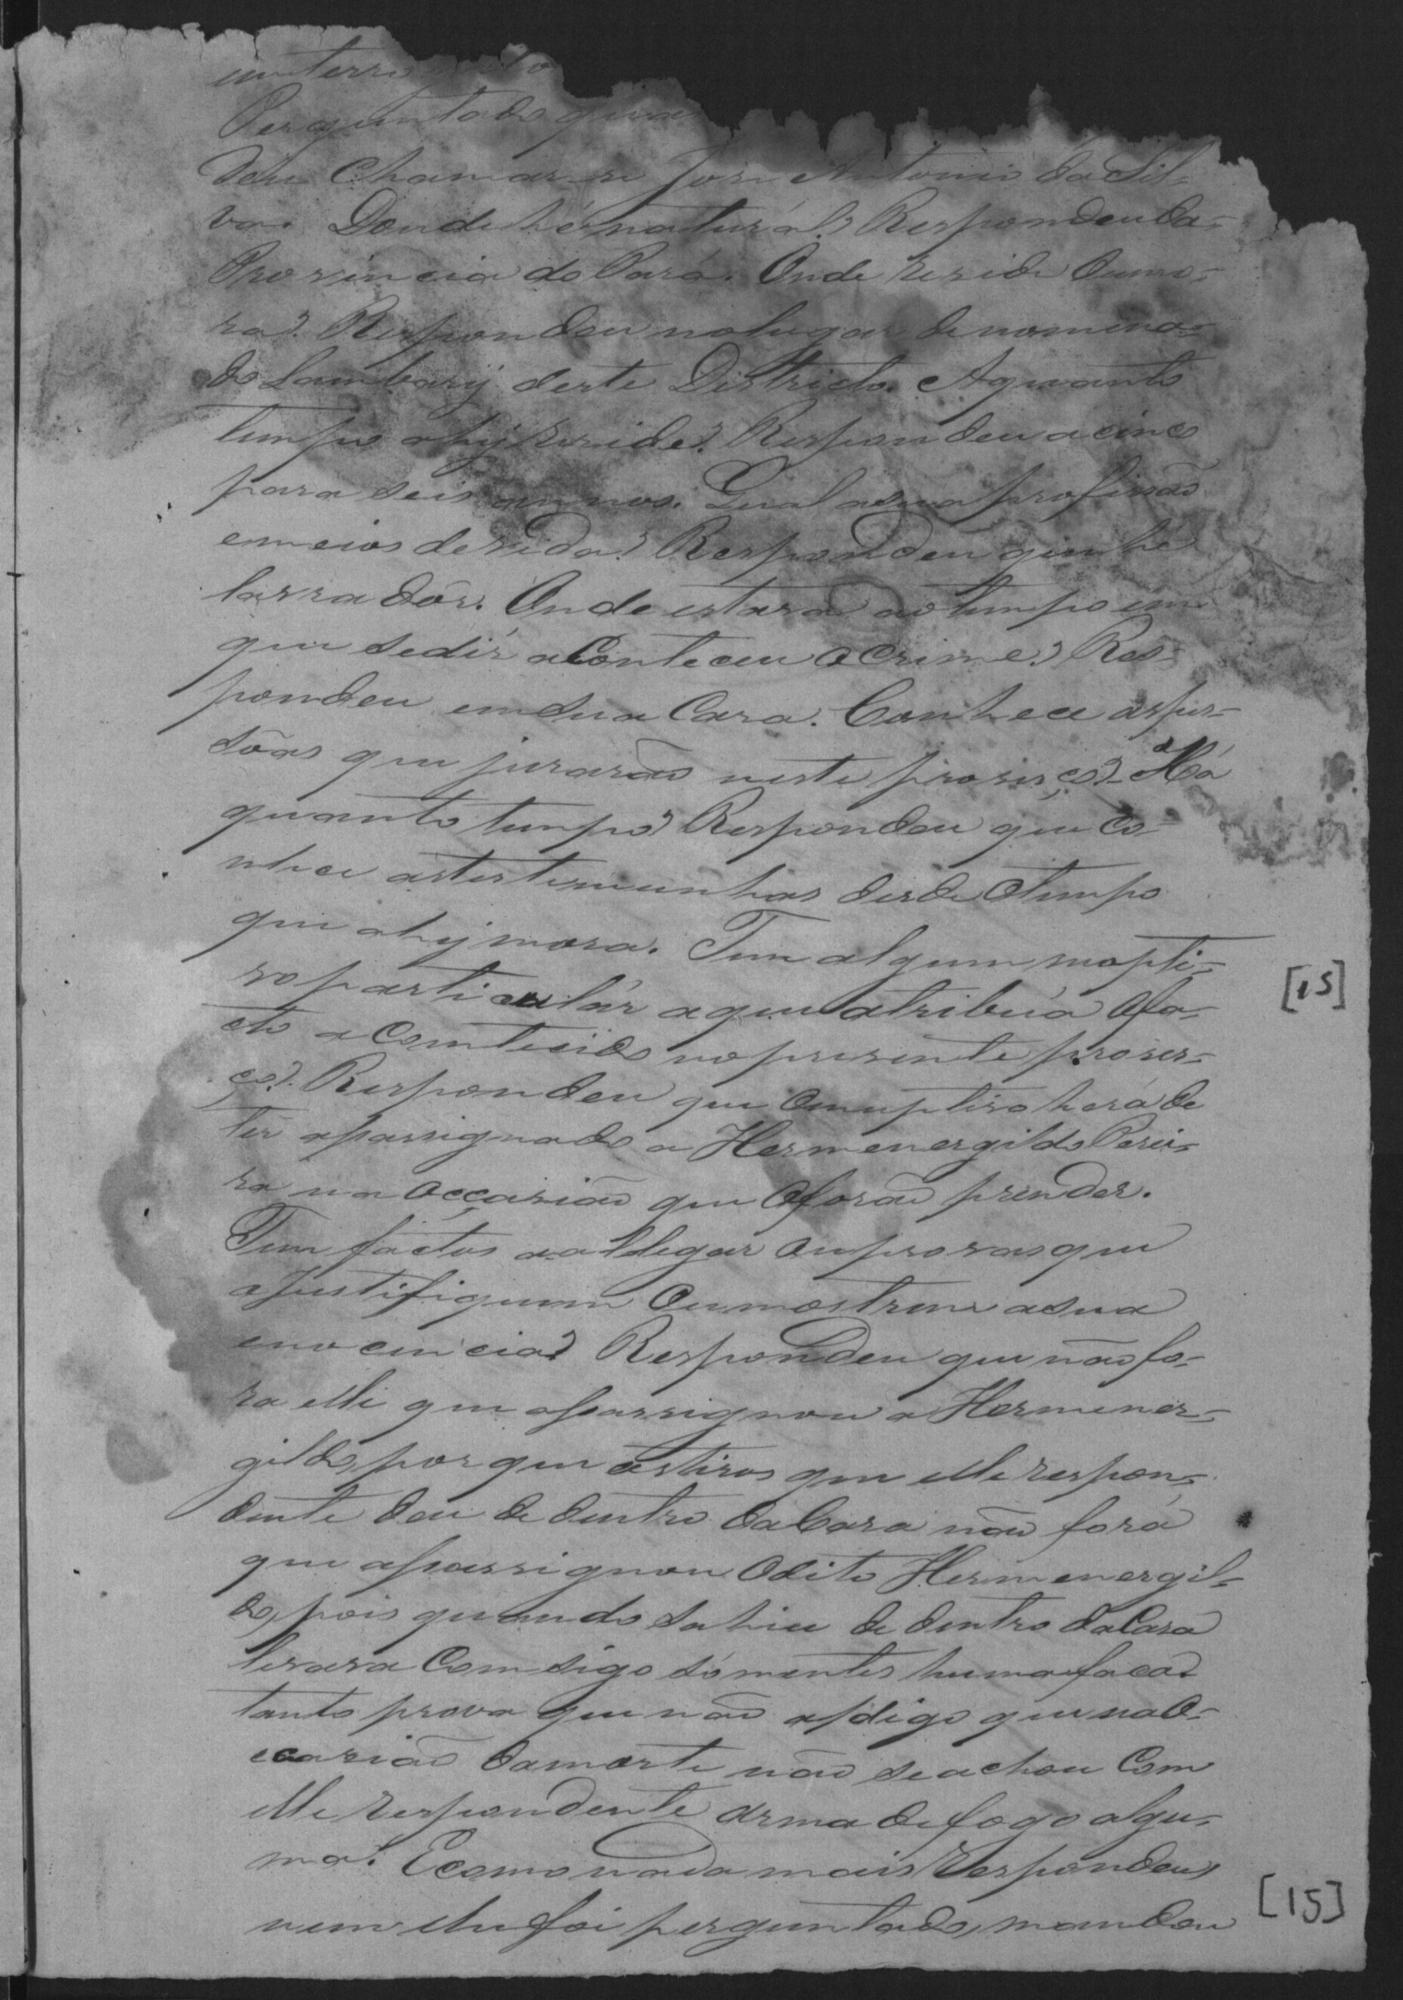 Perguntado qual
deu Chamar-se José Antonio da Sil-
va. Donde hé natural? Respondeu da
Provincia do Pará. Onde reside ou mo-
ra? Respondeu no lugar denomina-
do Lambary deste Districto. A quanto
tempo ahy reside? Respondeu a cinco
para seis annos. Qual a sua profissão
e meios de vida? Respondeu que hé
lavradôr. Onde estava ao tempo em
que se diz aConteceu o Crime? Res-
pondeu em sua Casa. Conhece as pes-
sôas que jurarão neste prosesço? Há
quanto tempo? Respondeu que Co-
nhece as testemunhas desde o tempo
que ahy mora. Tem algum mopti-
vo particular a que atribúa o fa-
cto aComtecido no presente proses-
ço? Respondeu que o muptivo hera de
ter aSassignado a Hermenergildo Perei-
ra na occazião que o forão prender.
Tem fáctos a alegar ou provas que
aJustifiquem ou mostrem a sua
inocencia? Respondeu que não fo-
ra elle que aSassignou a Hermener-
gildo, por que os tiros que elle respon-
dente deu de dentro da Casa não fora
que aSassignou o dito Hermenergil-
do, pois quando sahiu de dentro da Casa
levara Comsigo sómentes huma faca
tanto prova que não, a/digo que na o-
ccazião da morte não se achou Com
elle respondente arma de fogo algu-
ma. E como nada mais respondeu
nem lhe foi perguntado, mandou
[15]
[15]